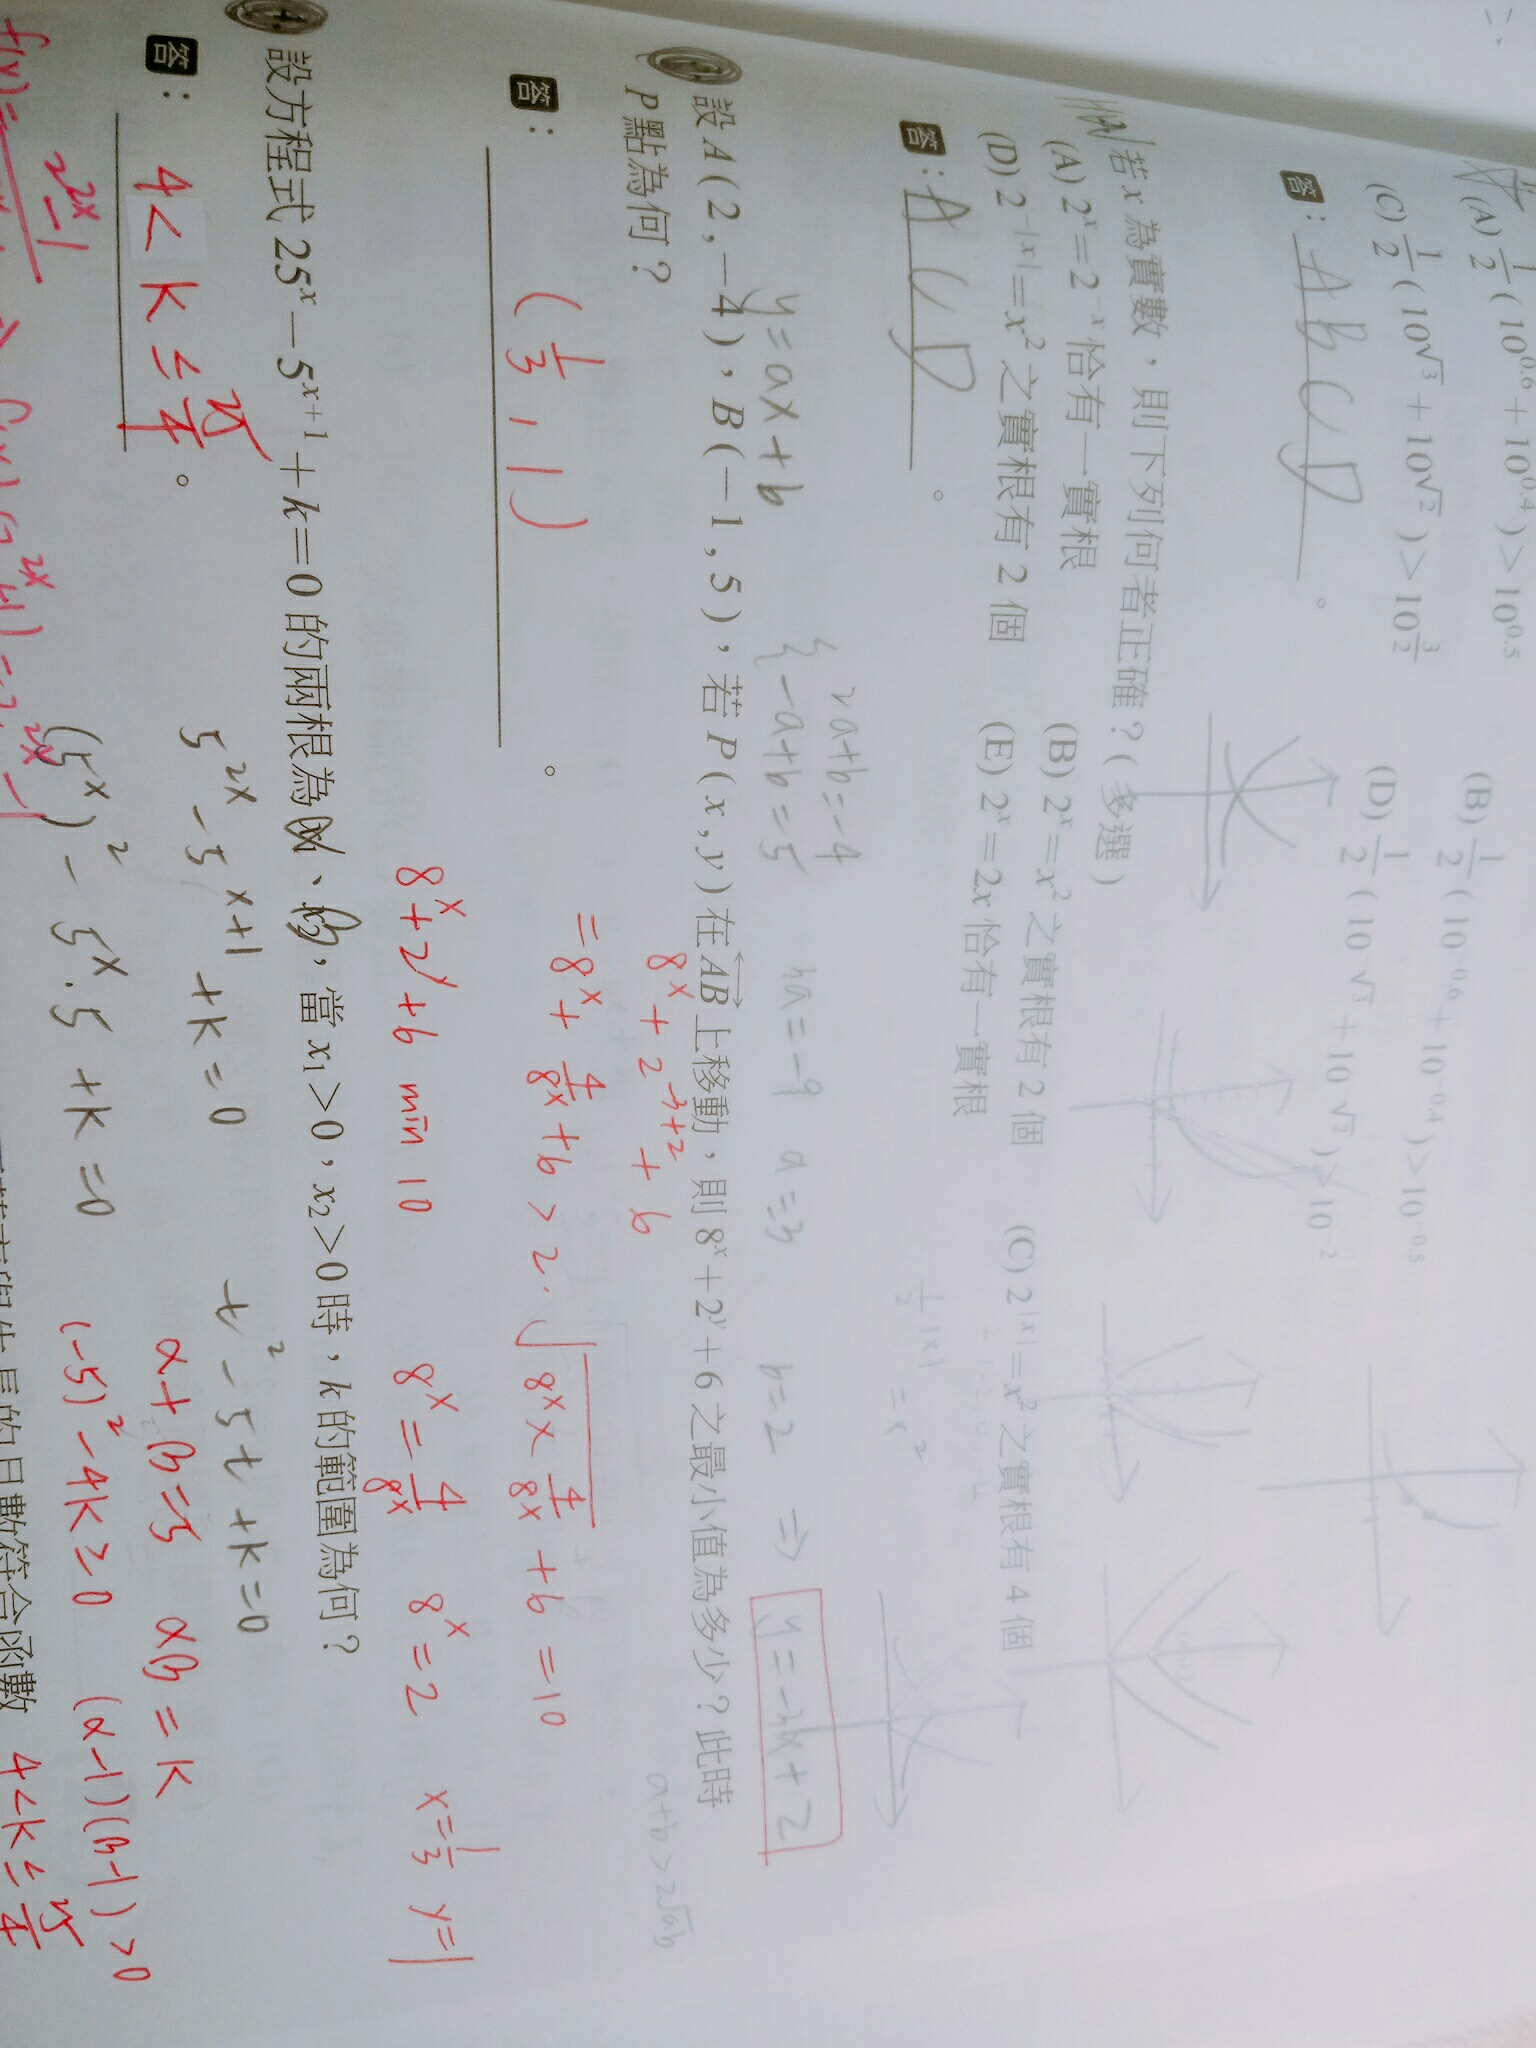 (A) 1/2 (10^0.6 + 10^0.4) > 10^0.5
(B) 1/2 (10^-0.6 + 10^-0.4) > 10^-0.5
(C) 1/2 (10^√3 + 10^√2) > 10^(3/2)
(D) 1/2 (10^-√3 + 10^-√2) > 10^-2
答: ABCD 。
若 x 為實數,則下列何者正確?(多選)
(A) 2^x = 2^-x 恰有一實根
(B) 2^x = x^2 之實根有 2 個
(C) 2^|x| = x^2 之實根有 4 個
(D) 2^-|x| = x^2 之實根有 2 個
(E) 2^x = 2x 恰有一實根
1/2 |x| = x^2
答: ACD 。
2a+b=-4
y=ax+b { -a+b=5
b=2 ⇒ y=-3x+2
設 A(2,-4),B(-1,5),若 P(x,y) 在 AB 上移動,則 8^x + 2^y + 6 之最小值為多少?此時
P 點為何?
8^x + 2^-3+2 + 6
a+b > 2√ab
= 8^x + 4/8^x + 6 > 2·√(8^x × 4/8^x) + 6 = 10
答: (1/3 , 1) 。
8^x + 2^y + 6 min 10
8^x = 4/8^x
8^x = 2
x = 1/3 y = 1
設方程式 25^x - 5^(x+1) + k = 0 的兩根為 、 ,當 x₁>0,x₂>0 時,k 的範圍為何?
5^2x - 5^x+1 + k = 0
t^2 - 5t + k = 0
答: 4 < k ≤ 25/4 。
α+β=5 αβ=k
(5^x)^2 - 5^x·5 + k = 0
(-5)^2 - 4k ≥ 0 (α-1)(β-1) > 0
2^2x - 1
4 < k ≤ 25/4
的日數符合函數